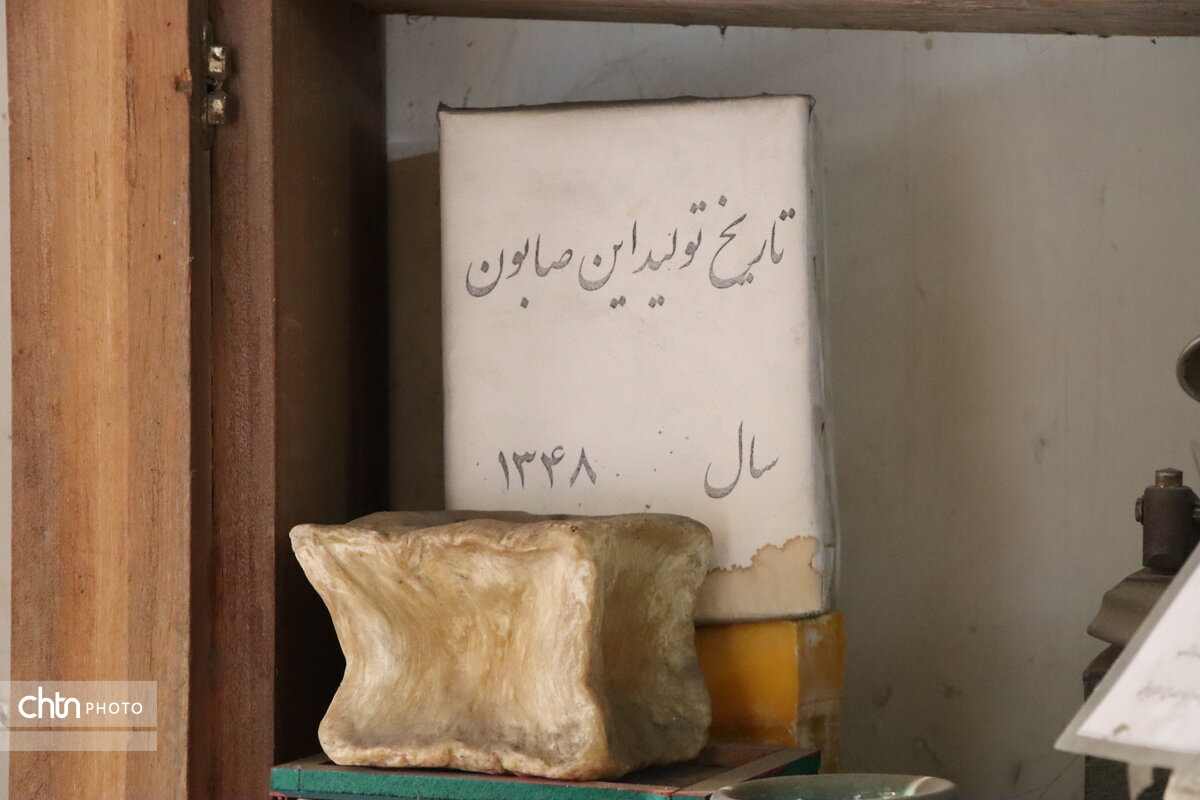 تاریخ تولید این صابون
سال ۱۳۴۸
chtn PHOTO